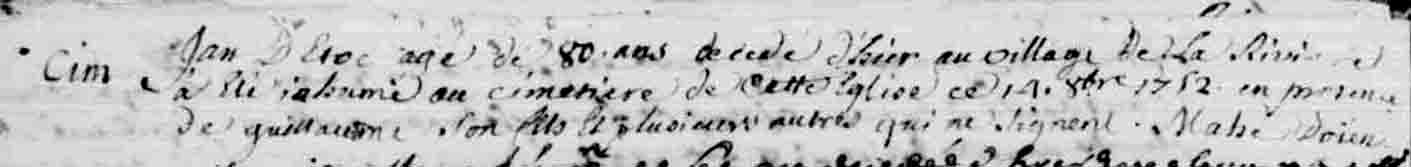 Cim
Jan D'Etoc agé de 80 ans decedé d'hier au village De La Rivi
à été inhumé au cimetiere de Cette Eglise ce 14. 8bre 1752 en presence
de guillaume son fils et plusieurs autres qui ne signent. Mahé Doien